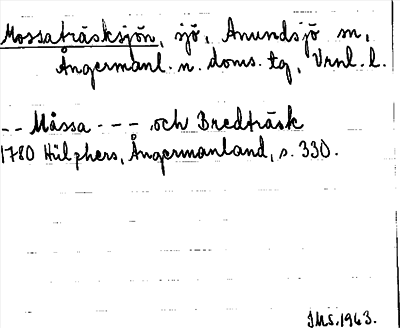 Mossaträsksjön, sjö, Anundsjö sn,
Ångermanl. n. doms. tg, Vrnl. l.
-- Måssa --- och Bredträsk
1780 Hülphers, Ångermanland, s. 330.
IMS. 1963.